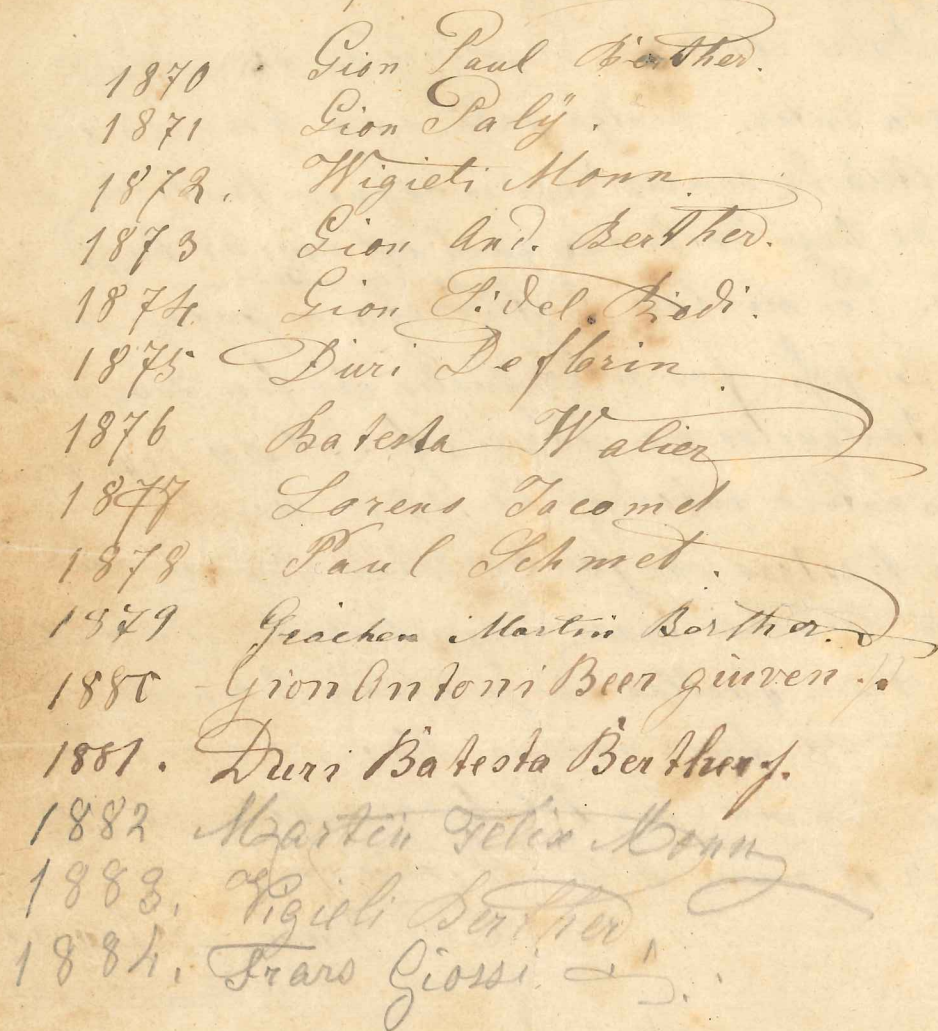 1870 Gion Paul Berther.
1871 Gion Palÿ.
1872. Wigieli Monn
1873 Gion And. Berther.
1874 Gion Fidel Riedi.
1875 Duri Deflorin
1876 Batesta Walier
1877 Lorens Jacomet
1878 Paul Schmet.
1879 Giachen Martin Berther.
1880 Gion Antoni Beer giuven
1881. Duri Batesta Berther
1882 Martin Felix Monn
1883. Vigieli Berther
1884. Frans Giossi